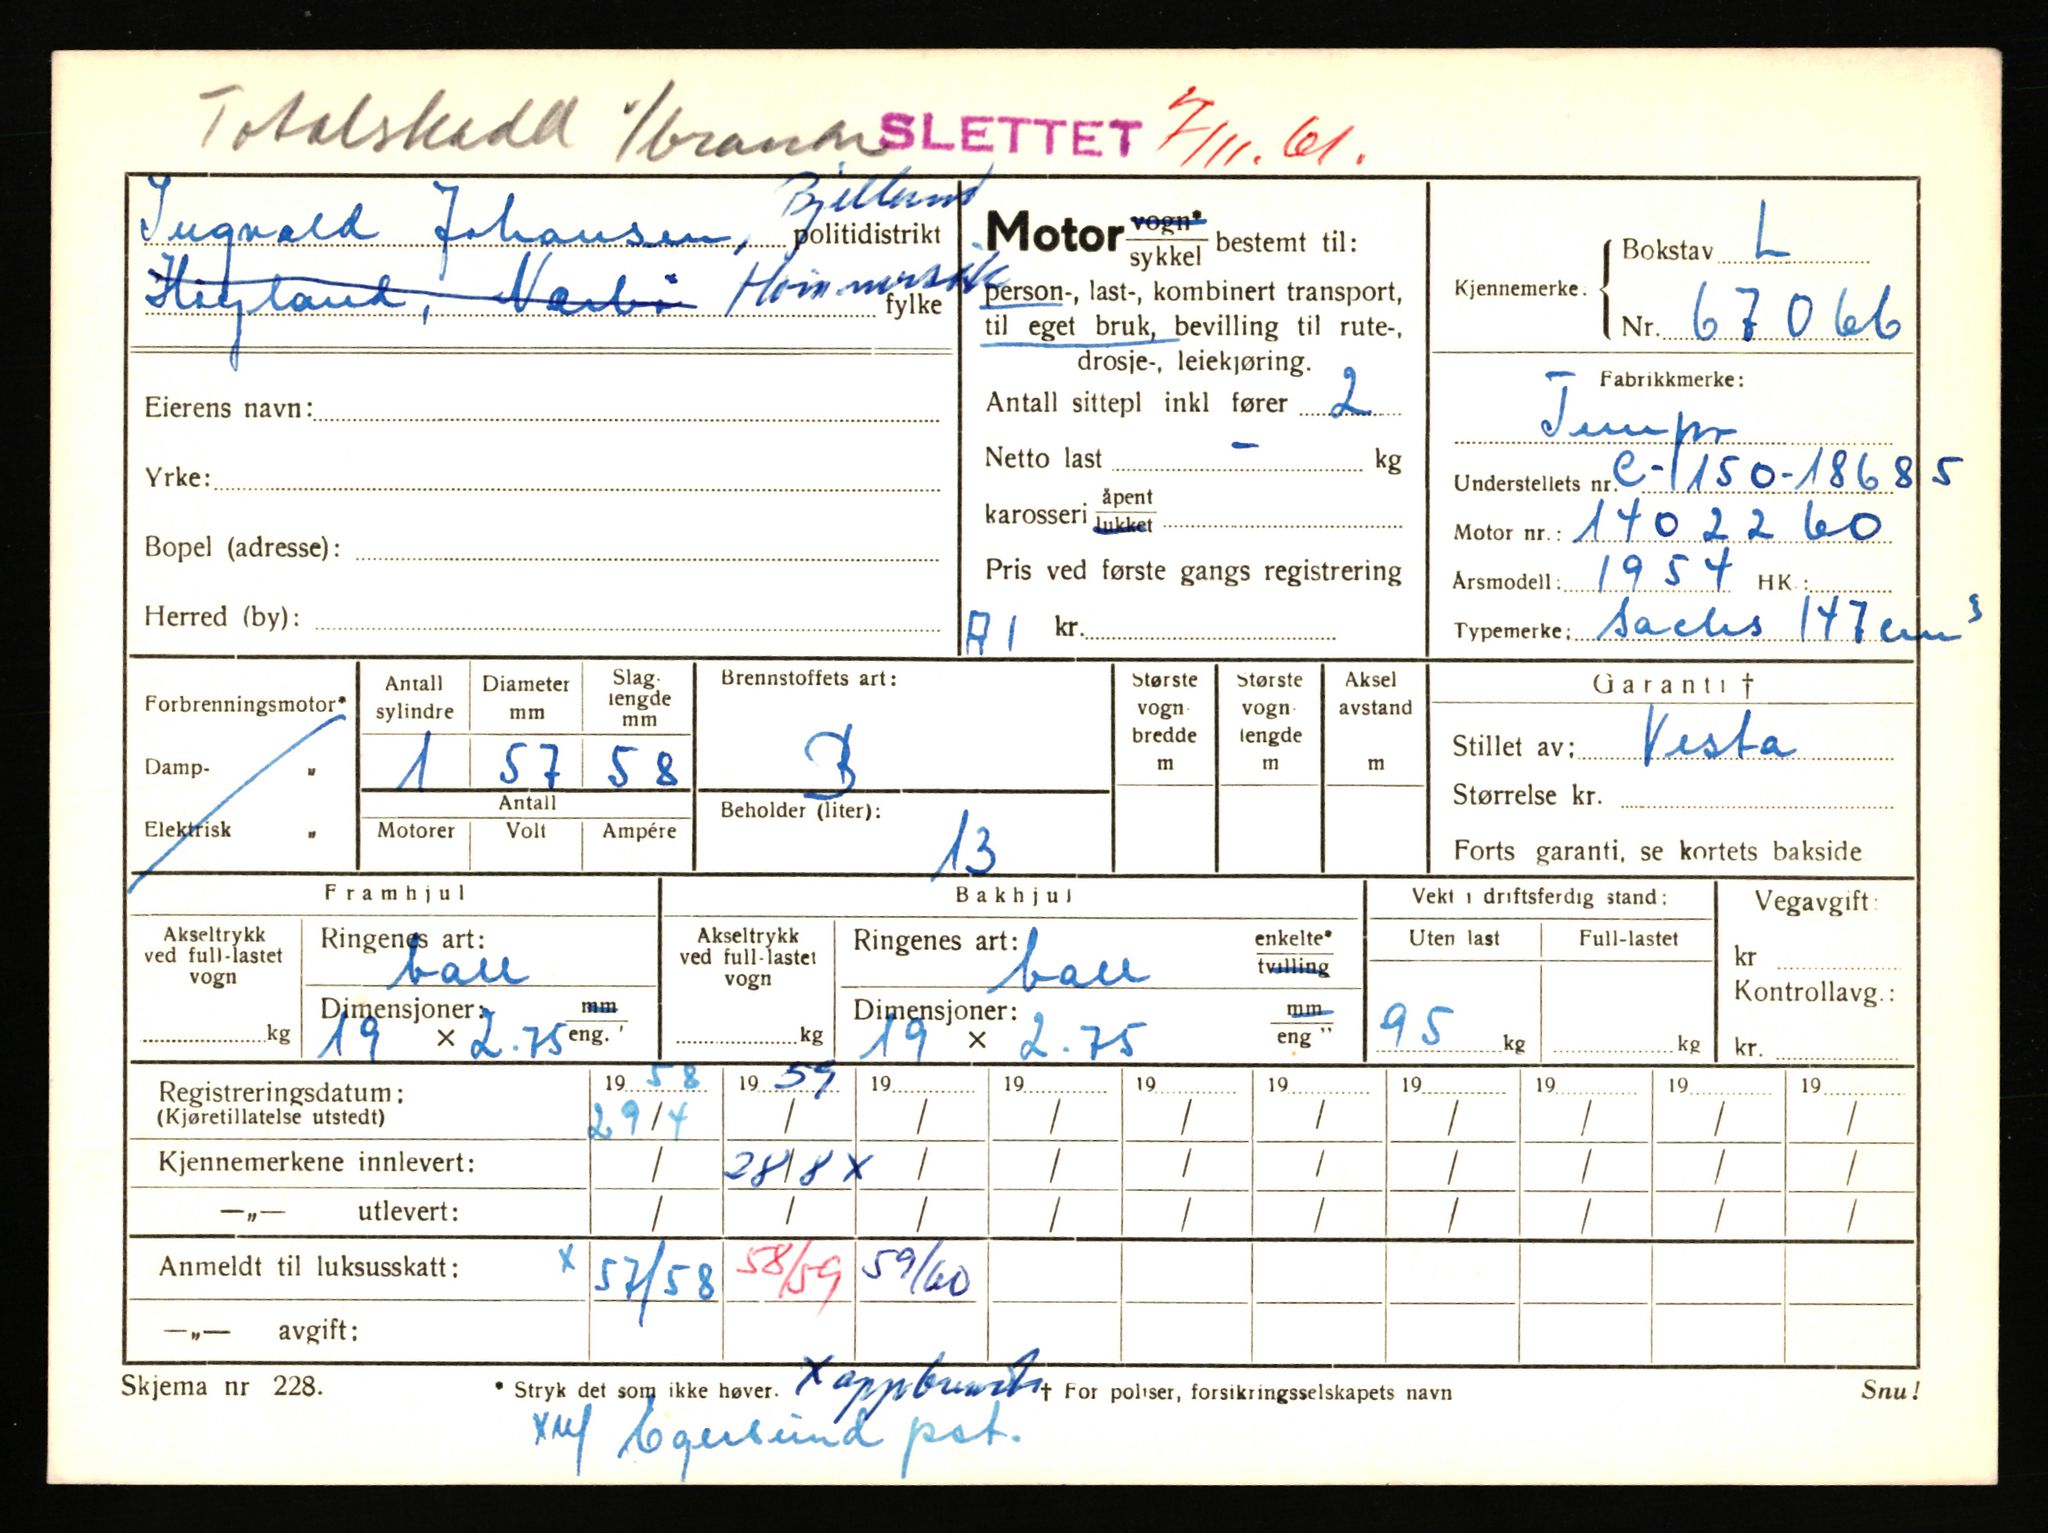 Totalskadd v/brann SLETTET 7/11. 61.
Ingvald Johansen, Bjelland politidistrikt
Høyland, Nærbø Hommersåk fylke
Eierens navn:
Yrke:
Bopel (adresse):
Herred (by):
Motor vogn* / sykkel bestemt til:
person-, last-, kombinert transport,
til eget bruk, bevilling til rute-,
drosje-, leiekjøring.
Antall sittepl inkl fører 2
Netto last - kg
karosseri åpent / lukket
Pris ved første gangs registrering
A1 kr.
Kjennemerke: Bokstav L
Nr. 67066
Fabrikkmerke:
Tempo
Understellets nr. C-150-18685
Motor nr.: 1402260
Årsmodell: 1954 HK.:
Typemerke: Sachs 147 cm³
Forbrenningsmotor*
Damp- "
Elektrisk "
Antall sylindre Diameter mm Slaglengde mm
1 57 58
Antall
Motorer Volt Ampére
Brennstoffets art:
B
Beholder (liter):
13
Største vogn bredde m
Største vogn lengde m
Aksel avstand m
Garanti †
Stillet av: Vesta
Størrelse kr.
Forts garanti, se kortets bakside
Framhjul
Akseltrykk ved full-lastet vogn kg
Ringenes art: ball
Dimensjoner: mm / eng."
19 × 2.75
Bakhjul
Akseltrykk ved full-lastet vogn kg
Ringenes art: ball enkelte* / tvilling
Dimensjoner: mm / eng "
19 × 2.75
Vekt i driftsferdig stand:
Uten last Full-lastet
95 kg kg
Vegavgift:
kr
Kontrollavg.:
kr.
Registreringsdatum: 19 58 19 59 19 19 19 19 19 19 19 19
(Kjøretillatelse utstedt) 29/4 / / / / / / / / /
Kjennemerkene innlevert: / 28/8 x / / / / / / / /
—„— utlevert: / / / / / / / / / /
Anmeldt til luksusskatt: x 57/58 58/59 59/60
—„— avgift:
Skjema nr 228. * Stryk det som ikke høver. x oppbrent † For poliser, forsikringsselskapets navn Snu!
x Egersund pst.